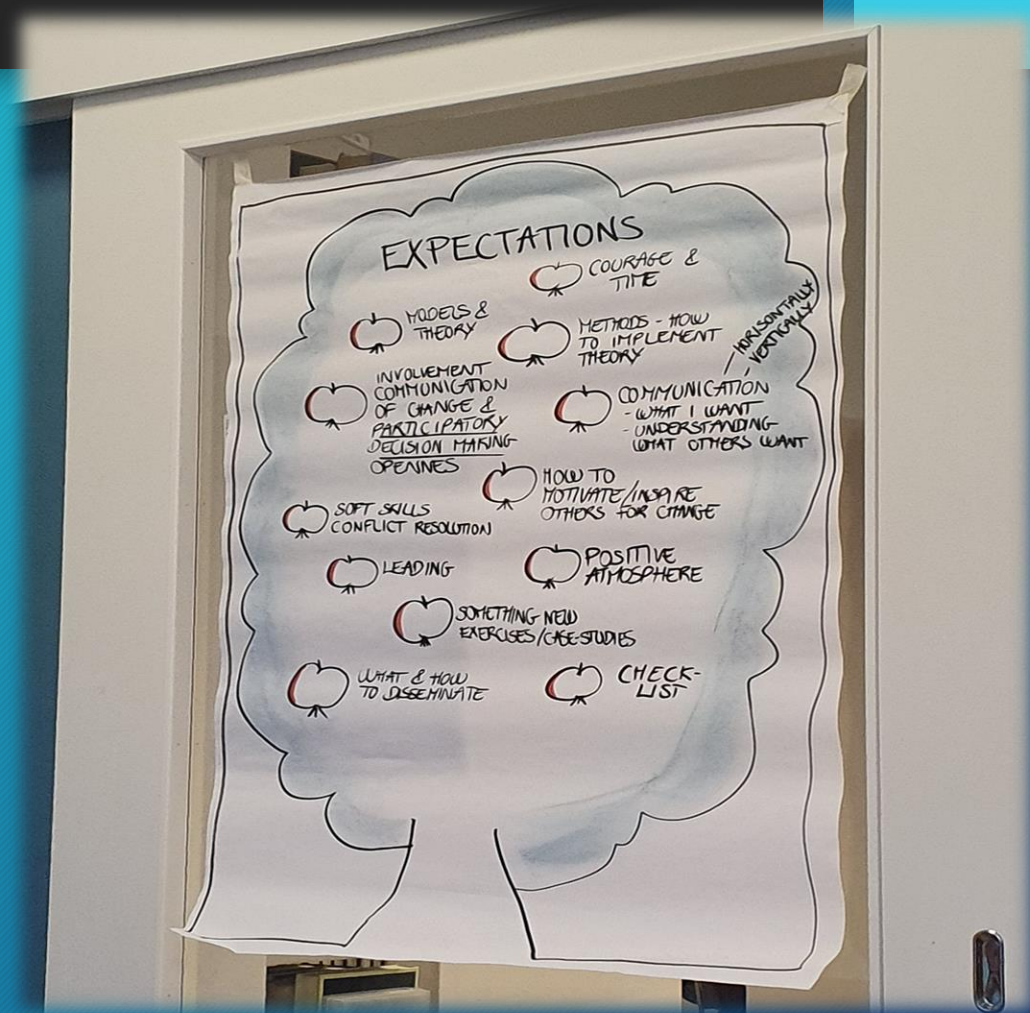 EXPECTATIONS
COURAGE &
TIME
MODELS &
THEORY
METHODS - HOW
TO IMPLEMENT
THEORY
HORISONTALLY
VERTICALLY
INVOLVEMENT
COMMUNICATION
OF CHANGE &
PARTICIPATORY
DECISION MAKING
OPENNES
COMMUNICATION
- WHAT I WANT
- UNDERSTANDING
WHAT OTHERS WANT
HOW TO
MOTIVATE/INSPIRE
OTHERS FOR CHANGE
SOFT SKILLS
CONFLICT RESOLUTION
LEADING
POSITIVE
ATMOSPHERE
SOMETHING NEW
EXERCISES/CASE-STUDIES
WHAT & HOW
TO DISSEMINATE
CHECK-
LIST